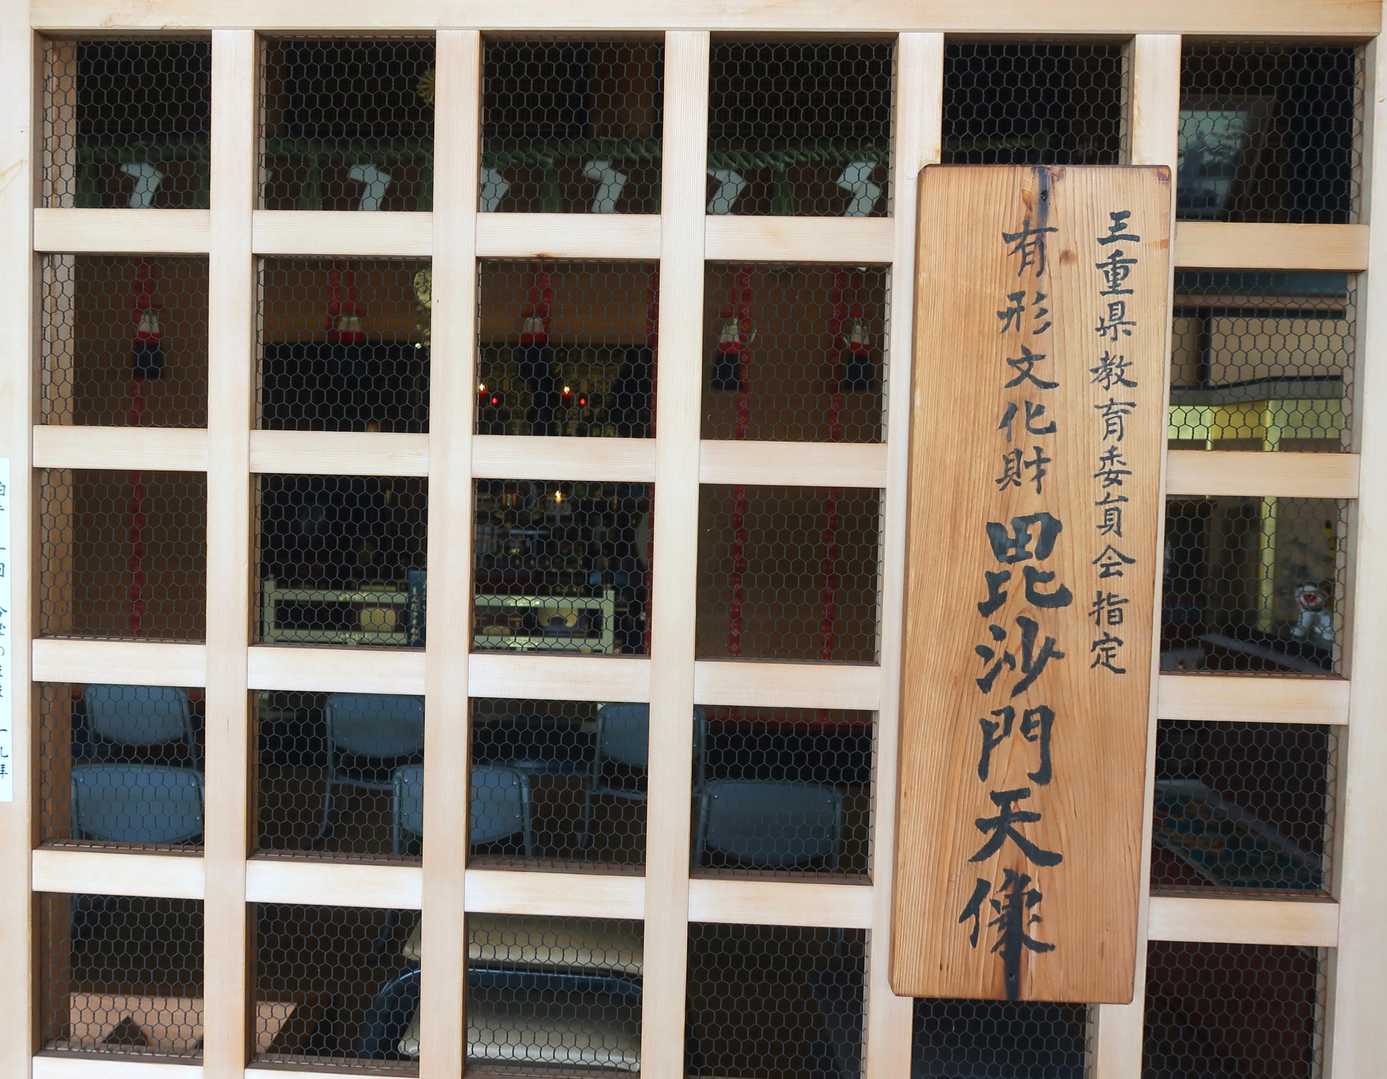 三重県教育委員会指定
有形文化財 毘沙門天像